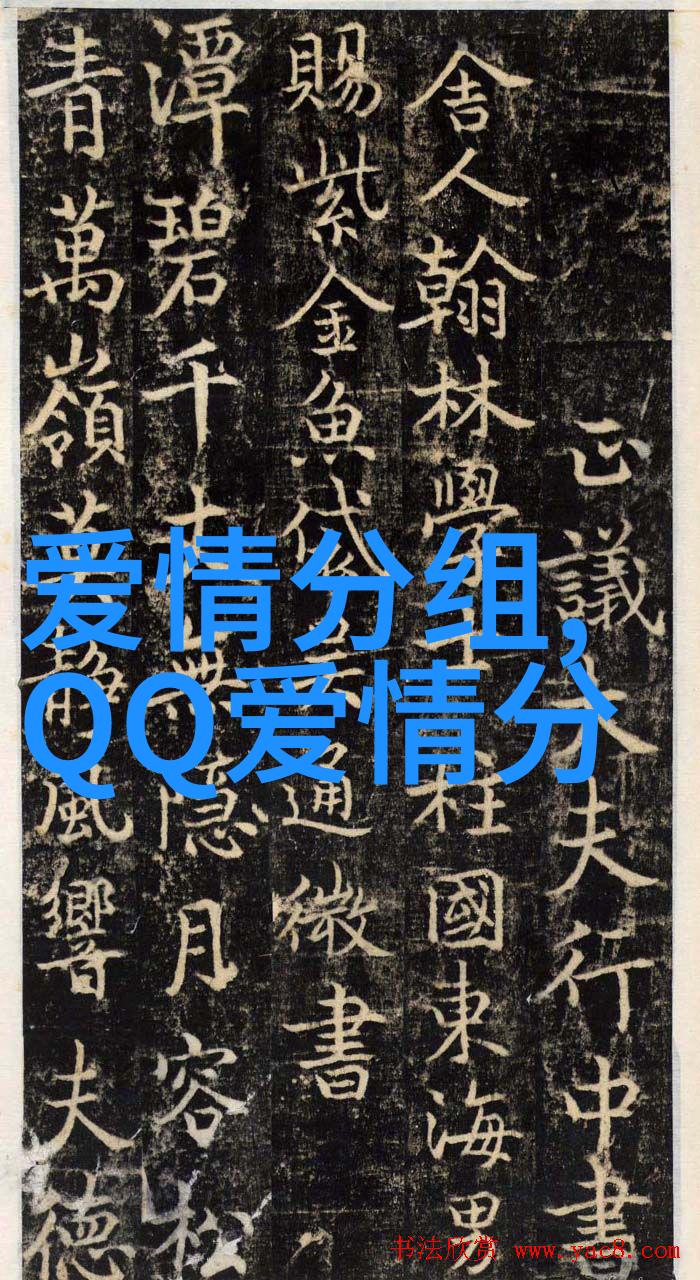 正議大夫行中書
舍人翰林學士柱國東海男
賜紫金魚袋吳通微書
潭碧千丈無隱月容松
青萬嶺靜風響夫德
爱情分组,
QQ爱情分
书法欣赏 www.yac8.com